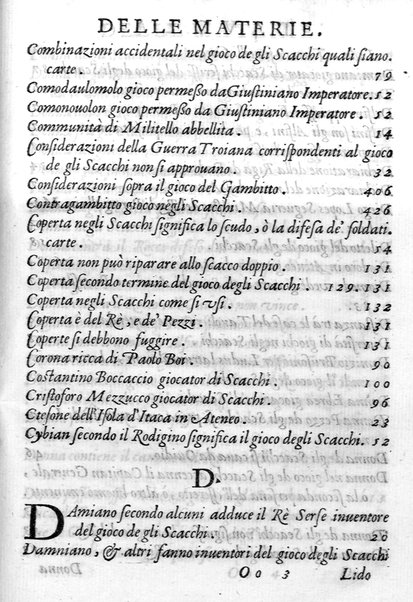 DELLE MATERIE.
Combinazioni accidentali nel gioco de gli Scacchi quali siano.
carte. 79
Comodaulomolo gioco permeßo da Giustiniano Imperatore. 12
Comonouolon gioco permeßo da Giustiniano Imperatore. 12
Communità di Militello abbellita. 14
Considerazioni della Guerra Troiana corrispondenti al gioco
de gli Scacchi non si approuano. 32
Considerazioni sopra il gioco del Gambitto. 406
Contragambitto gioco negli Scacchi. 426
Coperta negli Scacchi significa lo scudo, ò la difesa de' soldati.
carte. 14
Coperta non può riparare allo scacco doppio. 131
Coperta secondo termine del gioco degli Scacchi. 129. 131
Coperta negli Scacchi come si vsi. 132
Coperta è del Rè, e de' Pezzi. 131
Coperte si debbono fuggire. 131
Corona ricca di Paolo Boi. 90
Costantino Boccaccio giocator di Scacchi. 100
Cristoforo Mezzucco giocator di Scacchi. 96
Ctesone dell'Isola d'Itaca in Ateneo. 23
Cybian secondo il Rodigino significa il gioco degli Scacchi. 12
D.
Damiano secondo alcuni adduce il Rè Serse inuentore
del gioco de gli Scacchi. 20
Damniano, & altri fanno inuentori del gioco degli Scacchi
Oo 43 Lido